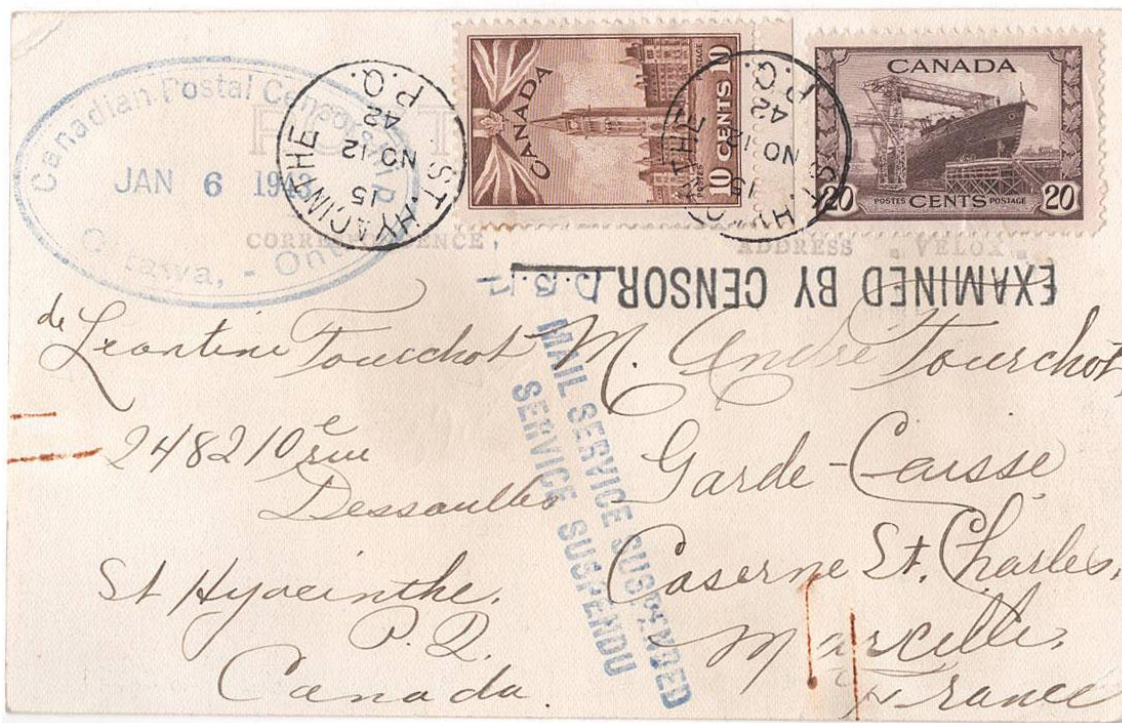 Canadian Postal Censorship
JAN 6 1943
Ottawa, - Ont.
ST. HYACINTHE
15
NO 12
42
P.Q.
CANADA
10 CENTS 10
POSTES POSTAGE
ST. HYACINTHE
15
NO 12
42
P.Q.
CANADA
20 CENTS 20
POSTES POSTAGE
CORRESPONDENCE,
ADDRESS "VELOX"
EXAMINED BY CENSOR
D.B.
MAIL SERVICE SUSPENDED
SERVICE SUSPENDU
de Leontine Tourchot
24810e rue
Dessaulles
St Hyacinthe.
P.Q.
Canada.
M. Andre Tourchot,
Garde-Caisse
Caserne St. Charles,
Marcelle,
France